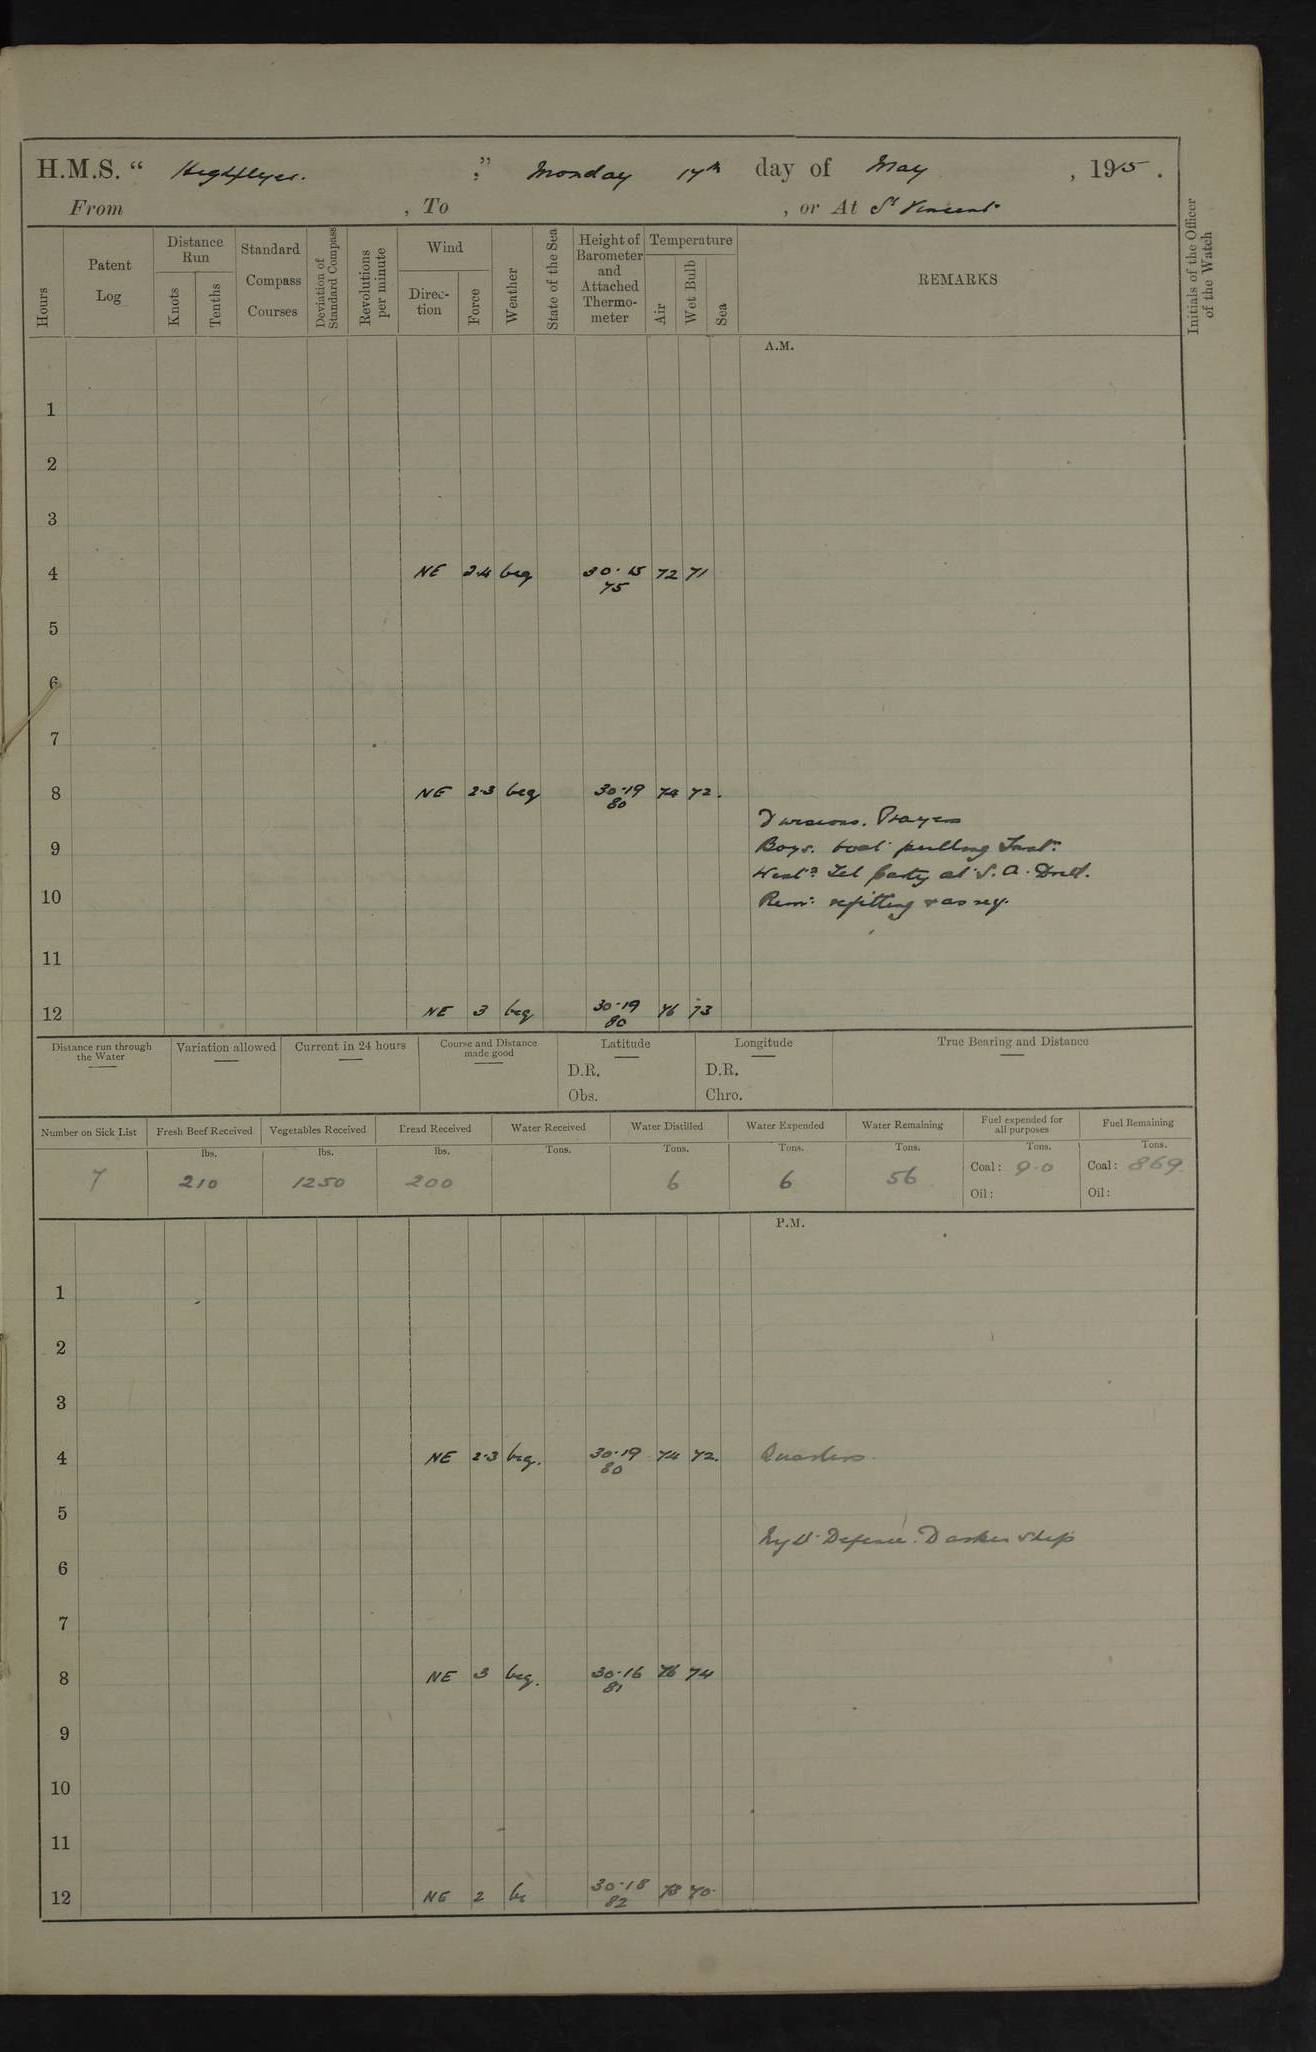 H.M.S. “ Highflyer. ” Monday 17th day of May , 1915 .
From , To , or At St Vincent
Hours
Patent Log
Distance Run
Knots
Tenths
Standard Compass Courses
Deviation of Standard Compass
Revolutions per minute
Wind
Direc-tion
Force
Weather
State of the Sea
Height of Barometer and Attached Thermo-meter
Temperature
Air
Wet Bulb
Sea
REMARKS
Initials of the Officer of the Watch
A.M.
1
2
3
4 NE 3.4 bcq 30.15 72 71
75
5
6
7
8 NE 2.3 bcq 30.19 74 72.
80
Divisions. Prayers
9 Boys. boat pulling Inst.
Tel party at S.A. Drill.
10 Rem: refitting & as req.
11
12 NE 3 bcq 30.19 76 73
80
Distance run through the Water
Variation allowed
Current in 24 hours
Course and Distance made good
Latitude
D.R.
Obs.
Longitude
D.R.
Chro.
True Bearing and Distance
Number on Sick List Fresh Beef Received Vegetables Received Bread Received Water Received Water Distilled Water Expended Water Remaining Fuel expended for all purposes Fuel Remaining
lbs. lbs. lbs. Tons. Tons. Tons. Tons. Tons. Tons.
7 210 1250 200 6 6 56 Coal: 9.0 Coal: 869
Oil: Oil:
P.M.
1
2
3
4 NE 2.3 bcq. 30.19 74 72. Quarters
80
5
Night Defence. Darken Ship
6
7
8 NE 3 bcq. 30.16 76 74
81
9
10
11
12 NE 2 bc 30.18 73 70.
82